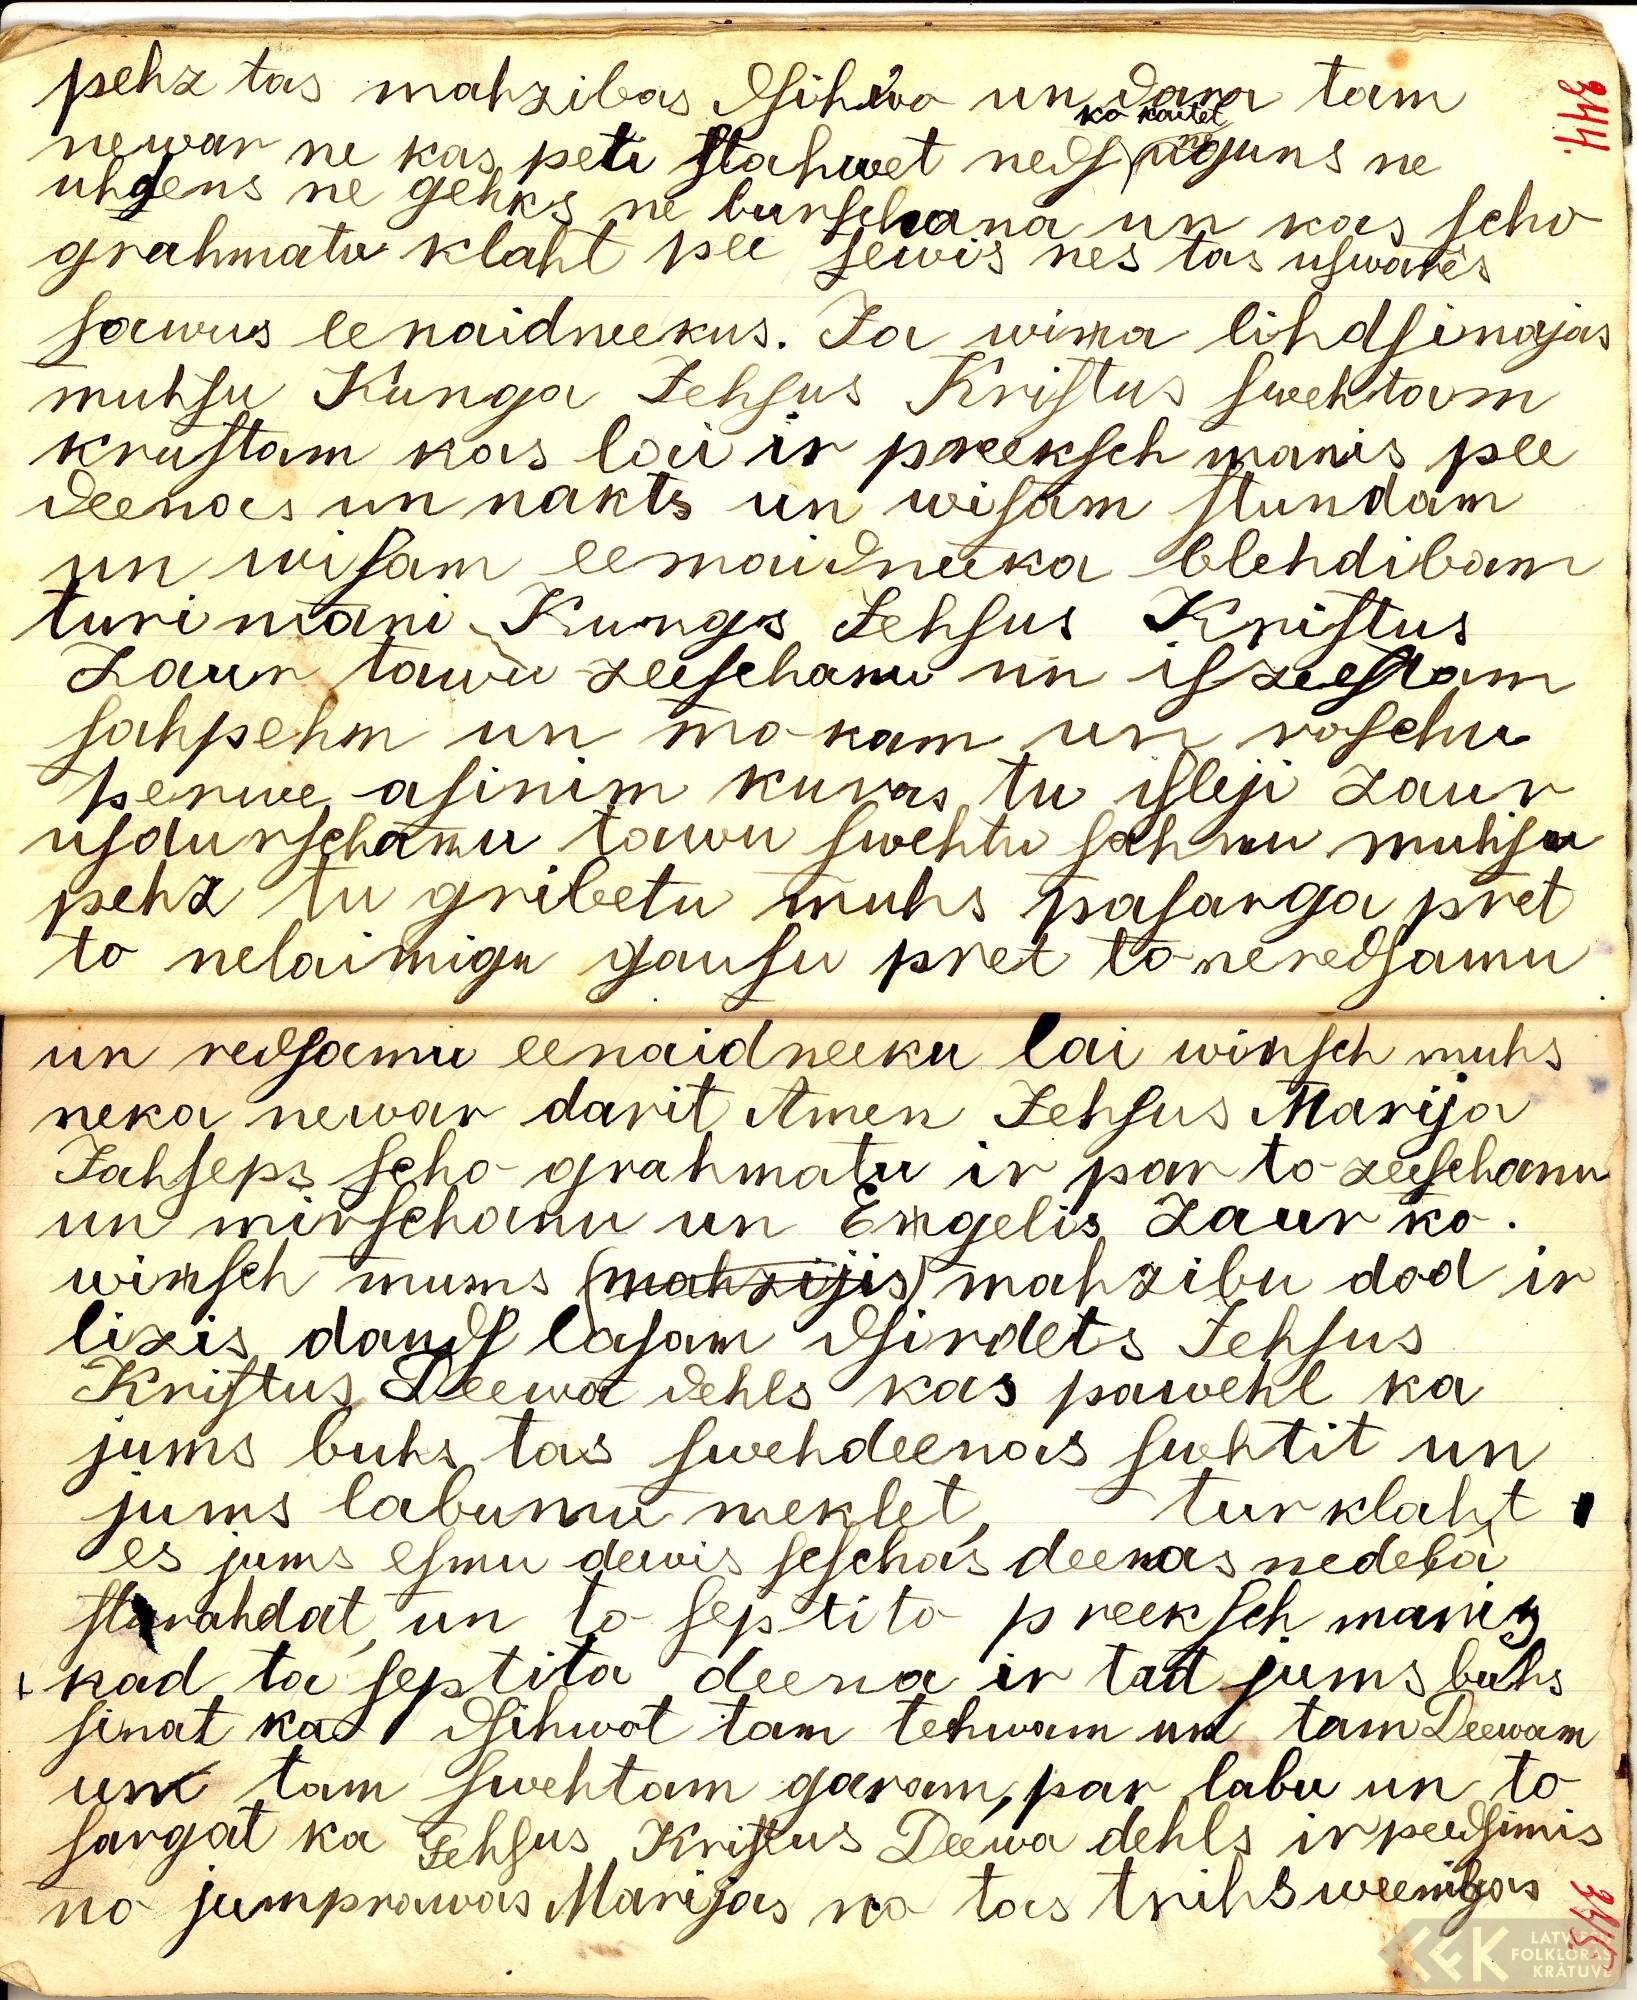 3444.
pehz tas mahzibas dsihwo un dara tam
ko kaitet
newar ne kas preti stahwet neds uguns ne
uhdens ne gehks ne burschana un kas scho
grahmatu klaht pee sewis nes tas uswares
sawus eenaidneekus. Ja wina lihdsinajas
muhsu Kunga Jehsus Kristus swehtam
krustam kas lai ir preeksch manis pee
deenas un nakts un wisam stundam
un wisam eenaidneeka blehdibam
turi mani Kungs Jehsus Kristus
zaur tawu zeeschanu un iszeestam
sahpehm un mo-kam un roschu
perwe asinim kuras tu isleji zaur
usdurschanu tawu swehtu sahnu muhsu
pehz tu gribetu muhs pasarga pret
to nelaimigu gausu pret to neredsamu
un redsamu eenaidneeku lai winsch muhs
neka newar darit Amen Jehsus Marija
Jahseps scho grahmatu ir par to zeeschanu
un mirschanu un Engelis zaur ko.
winsch mums (mahzijis) mahzibu dod ir
lizis dauds lasam dsirdets Jehsus
Kristus Deewa dehls kas pawehl ka
jums buhs tas swehdeenas swhtit un
jums labumu meklet, turklaht
es jums esmu dewis seschas deenas nedela
strahdat, un to septito preeksch manis
kad ta septita deena ir tad jums buhs
sinat ka dsihwot tam tehwam un tam Deewam
un tam swehtam garam, par labu un to
sargat ka Jehsus Kristus Deewa dehls ir peedsimis
no jumprawas Marijas no tas trihsweenigas
3445.
LATVIEŠU
FOLKLORAS
KRĀTUVE